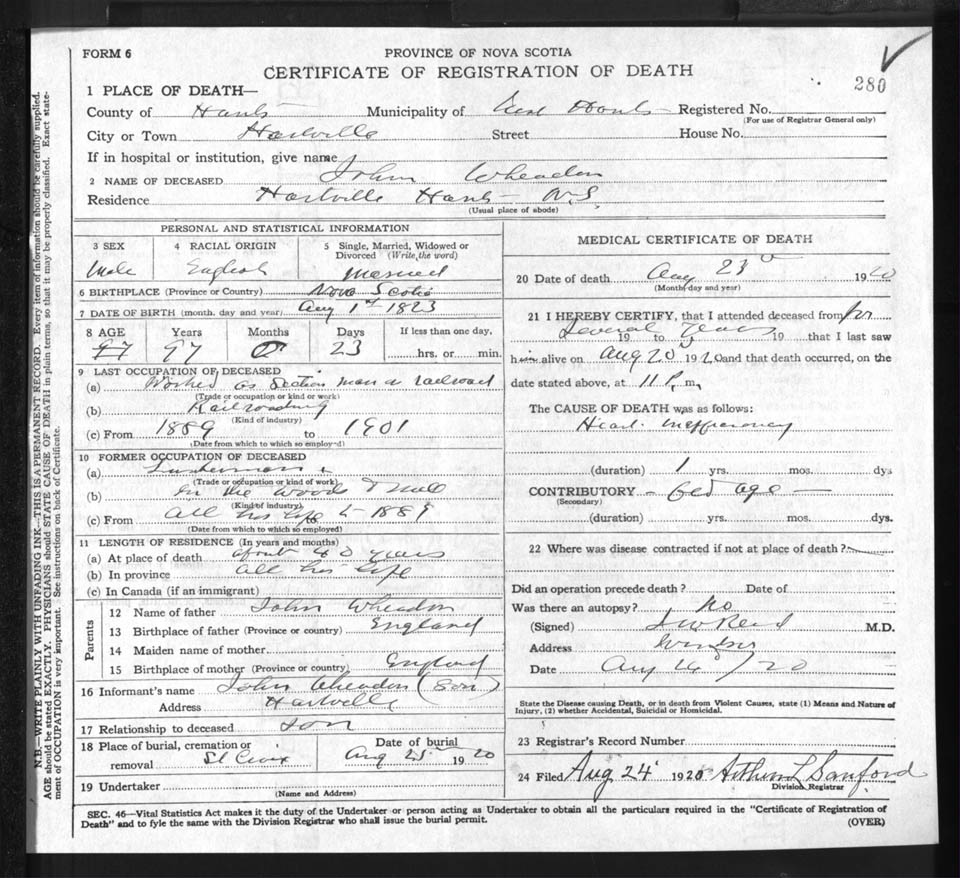 FORM 6
PROVINCE OF NOVA SCOTIA
CERTIFICATE OF REGISTRATION OF DEATH
280
1 PLACE OF DEATH—
County of Hants Municipality of East Hants Registered No.
(For use of Registrar General only)
City or Town Hartville Street House No.
If in hospital or institution, give name
2 NAME OF DECEASED John Wheadon
Residence Hartville Hants N.S.
(Usual place of abode)
PERSONAL AND STATISTICAL INFORMATION
3 SEX 4 RACIAL ORIGIN 5 Single, Married, Widowed or Divorced (Write the word)
Male English Married
6 BIRTHPLACE (Province or Country) Nova Scotia
7 DATE OF BIRTH (month, day and year) Aug 1st 1823
8 AGE Years Months Days If less than one day,
97 97 0 23 hrs. or min.
9 LAST OCCUPATION OF DECEASED
(a) Worked as Section man on railroad
(Trade or occupation or kind or work)
(b) Railroading
(Kind of industry)
(c) From 1889 to 1901
(Date from which to which so employed)
10 FORMER OCCUPATION OF DECEASED
(a) Lumberman
(Trade or occupation or kind of work)
(b) In the woods & mill
(Kind of industry)
(c) From All his life to 1889
(Date from which to which so employed)
11 LENGTH OF RESIDENCE (In years and months)
(a) At place of death about 40 years
(b) In province all his life
(c) In Canada (if an immigrant)
Parents
12 Name of father John Wheadon
13 Birthplace of father (Province or country) England
14 Maiden name of mother
15 Birthplace of mother (Province or country) England
16 Informant's name John Wheadon (Son)
Address Hartville
17 Relationship to deceased son
18 Place of burial, cremation or removal St Croix
Date of burial Aug 25 1920
19 Undertaker
(Name and Address)
MEDICAL CERTIFICATE OF DEATH
20 Date of death Aug 23 1920
(Month day and year)
21 I HEREBY CERTIFY, that I attended deceased from for
Several years 19 to 19 that I last saw
h im alive on Aug 20 1920 and that death occurred, on the
date stated above, at 11 P. m.
The CAUSE OF DEATH was as follows:
Heart inefficiency
(duration) 1 yrs. mos. dys
CONTRIBUTORY — Old age —
(Secondary)
(duration) yrs. mos. dys.
22 Where was disease contracted if not at place of death?
Did an operation precede death? Date of
Was there an autopsy? No
(Signed) J W Reid M.D.
Address Windsor
Date Aug 24 / 20
State the Disease causing Death, or in death from Violent Causes, state (1) Means and Nature of
Injury, (2) whether Accidental, Suicidal or Homicidal.
23 Registrar's Record Number
24 Filed Aug 24 1920 Arthur L Sanford
Division Registrar
SEC. 46—Vital Statistics Act makes it the duty of the Undertaker or person acting as Undertaker to obtain all the particulars required in the "Certificate of Registration of
Death" and to fyle the same with the Division Registrar who shall issue the burial permit.
(OVER)
N.B.—WRITE PLAINLY WITH UNFADING INK—THIS IS A PERMANENT RECORD. Every item of information should be carefully supplied.
AGE should be stated EXACTLY. PHYSICIANS should STATE CAUSE OF DEATH in plain terms, so that it may be properly classified. Exact state-
ment of OCCUPATION is very important. See instructions on back of Certificate.